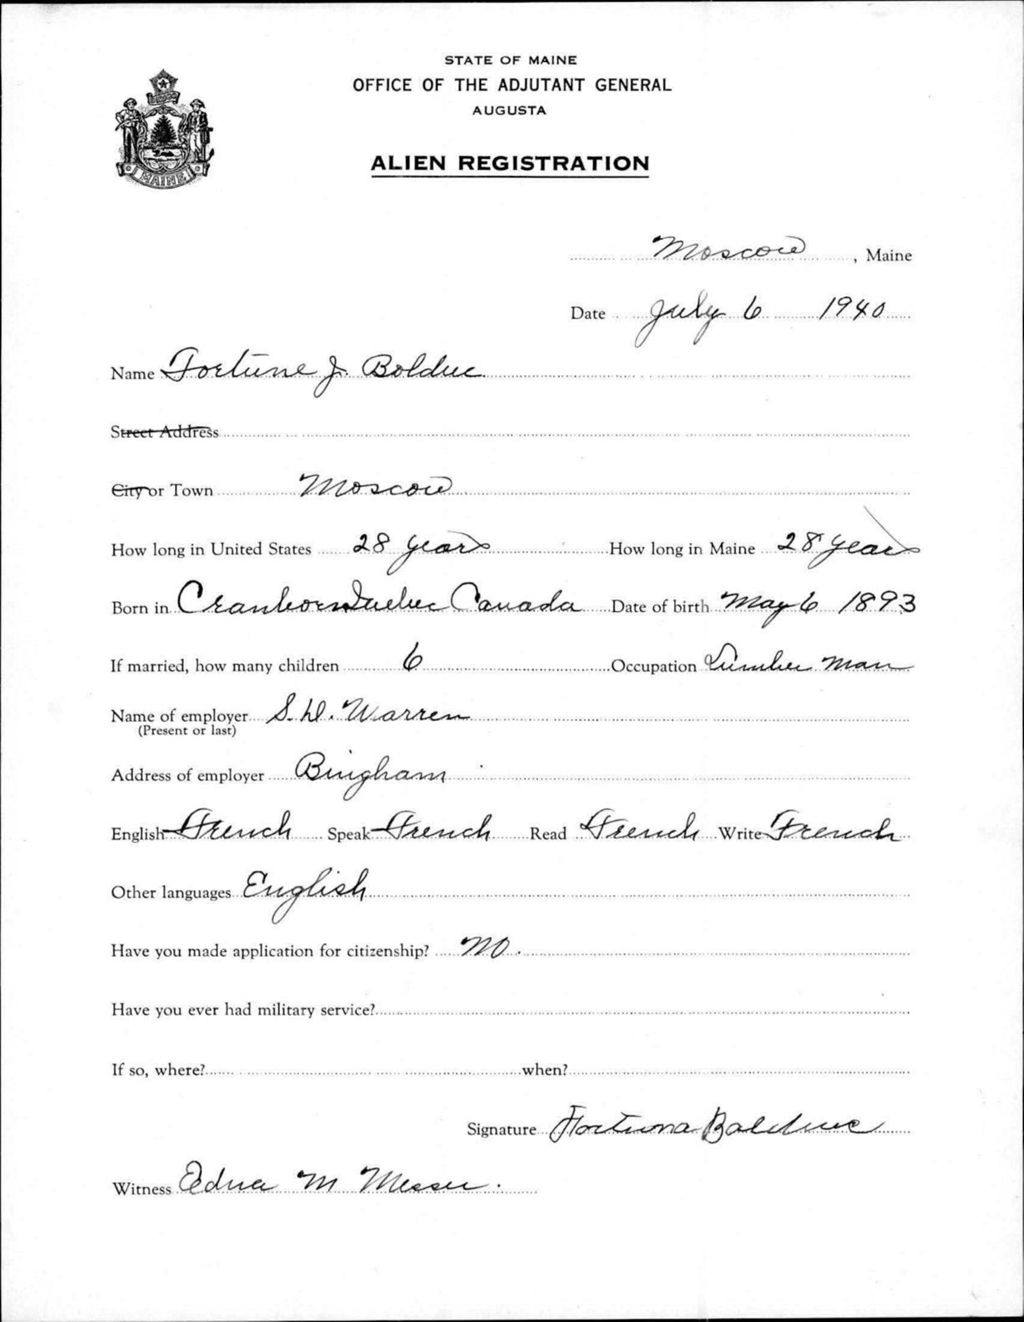 STATE OF MAINE
OFFICE OF THE ADJUTANT GENERAL
AUGUSTA
ALIEN REGISTRATION
MAINE
Moscow, Maine
Date July 6 1940
Name Fortune J. Bolduc
Street Address
City or Town Moscow
How long in United States 28 years How long in Maine 28 years
Born in Cranborn Quebec Canada Date of birth May 6 1893
If married, how many children 6 Occupation Lumber man
Name of employer S. D. Warren
(Present or last)
Address of employer Bingham
English French Speak French Read French Write French
Other languages English
Have you made application for citizenship? No.
Have you ever had military service?
If so, where? when?
Signature Fortuna Bolduc
Witness Edna M Messer.